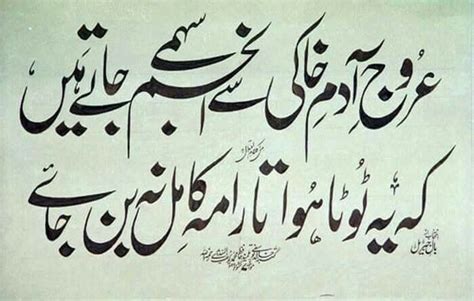 عروجِ آدمِ خاکی سے انجم سہمے جاتے ہیں
کہ یہ ٹوٹا ہوا تارا مہ کامل نہ بن جائے
بال جبریل